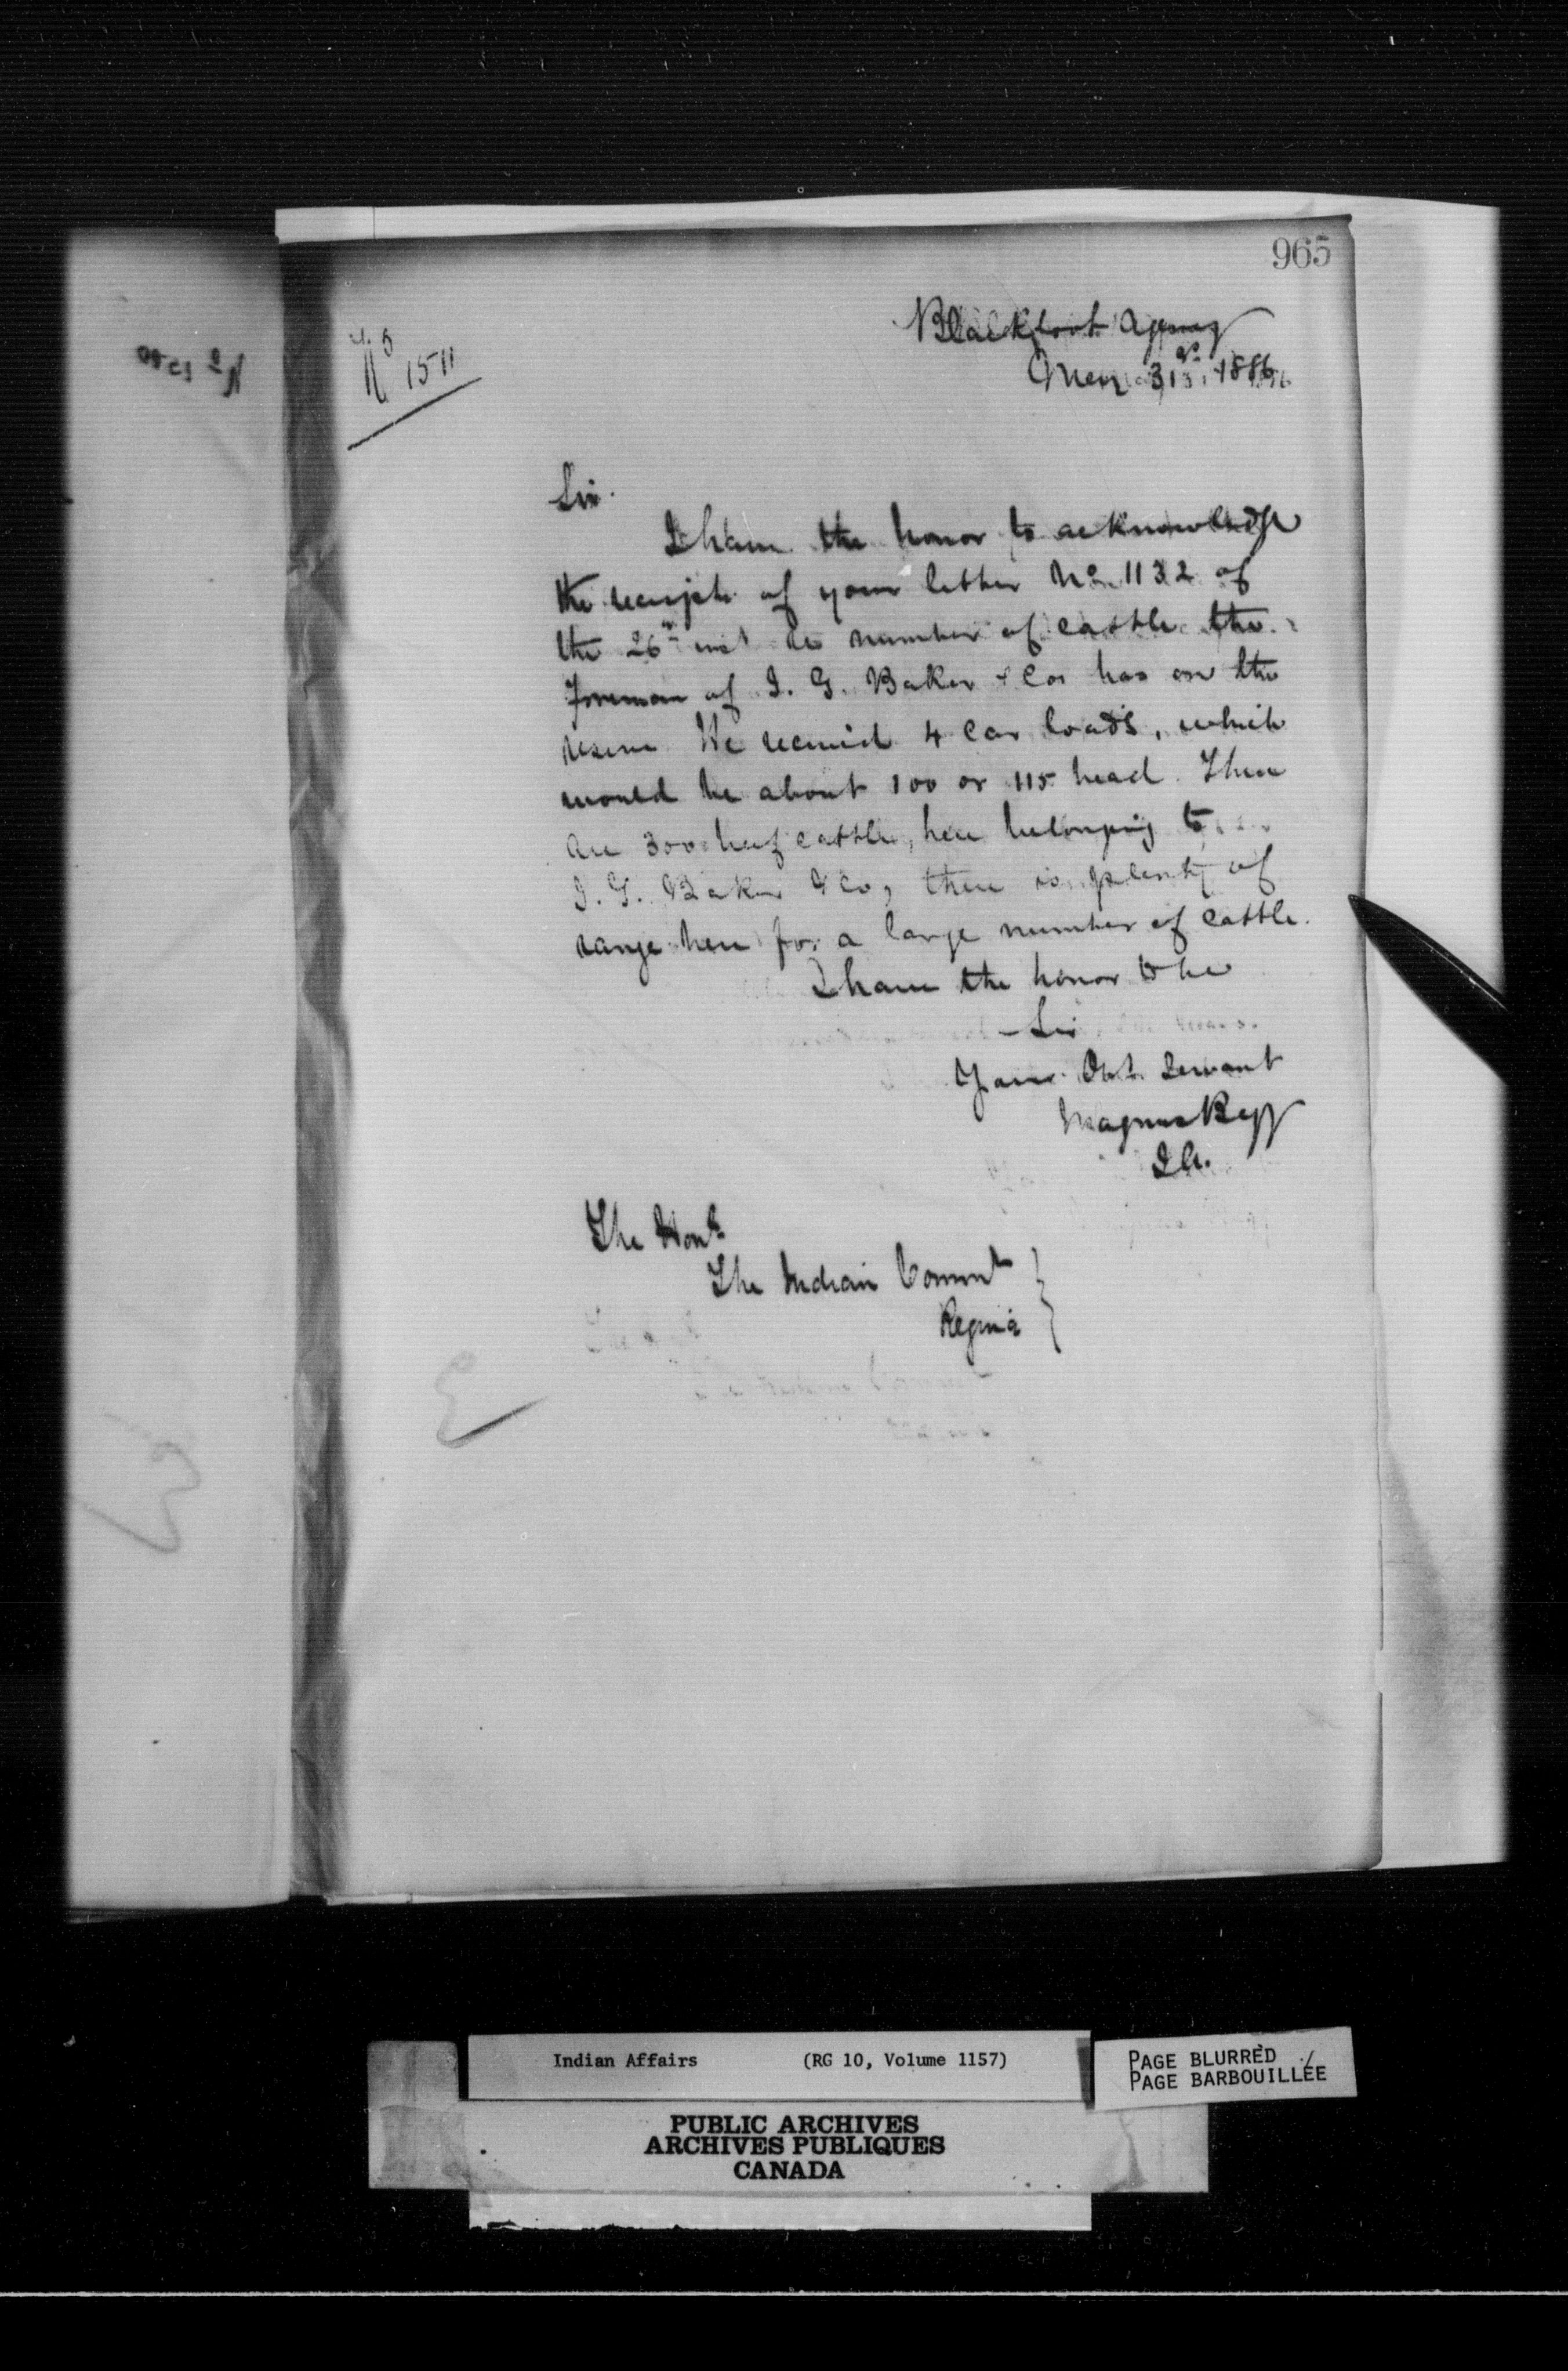 965
No 1511
Blackfoot Agency
May 31st 1886
Sir.
I have the honor to acknowledge
the receipt of your letter No 1132 of
the 26th inst re number of cattle the
Foreman of I. G. Baker & Cos has on the
reserve He received 4 car loads, which
would be about 100 or 115 head. There
are 300 beef cattle, here belonging to
I. G. Baker & Co, there is plenty of
range here for a large number of cattle.
I have the honor to be
Sir
Your Obt. Servant
Magnus Begg
I.A.
The Honl
The Indian Commr
Regina
Indian Affairs (RG 10, Volume 1157)
PAGE BLURRED
PAGE BARBOUILLÉE
PUBLIC ARCHIVES
ARCHIVES PUBLIQUES
CANADA